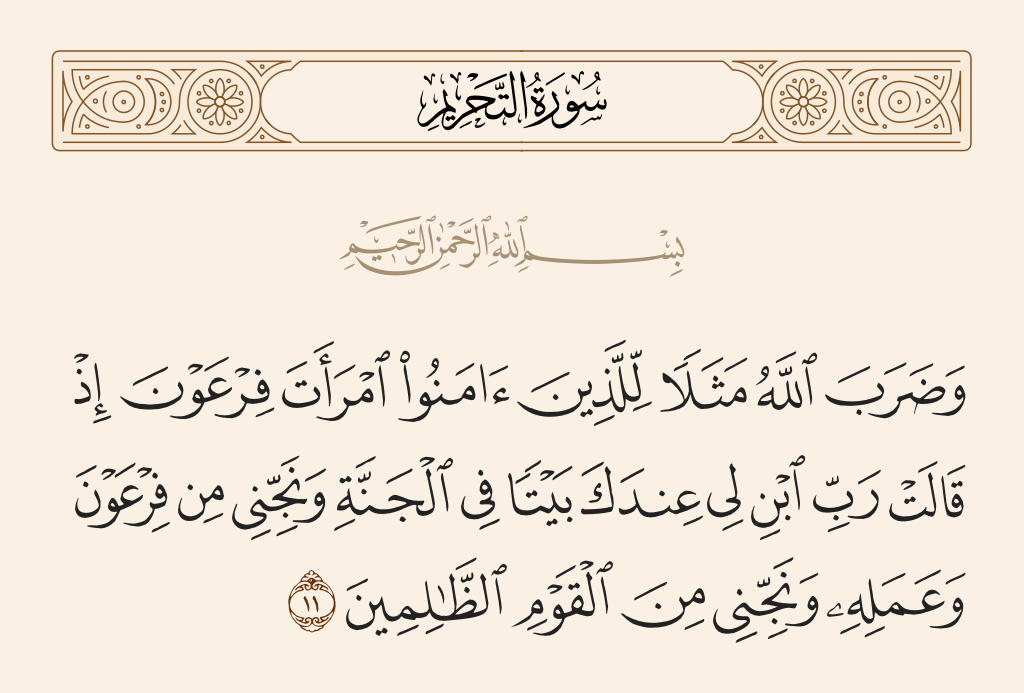 سُورَةُ التَّحْرِيمِ
بِسْمِ ٱللَّهِ ٱلرَّحْمَٰنِ ٱلرَّحِيمِ
وَضَرَبَ ٱللَّهُ مَثَلًا لِّلَّذِينَ ءَامَنُوا۟ ٱمْرَأَتَ فِرْعَوْنَ إِذْ
قَالَتْ رَبِّ ٱبْنِ لِى عِندَكَ بَيْتًا فِى ٱلْجَنَّةِ وَنَجِّنِى مِن فِرْعَوْنَ
وَعَمَلِهِۦ وَنَجِّنِى مِنَ ٱلْقَوْمِ ٱلظَّـٰلِمِينَ ١١